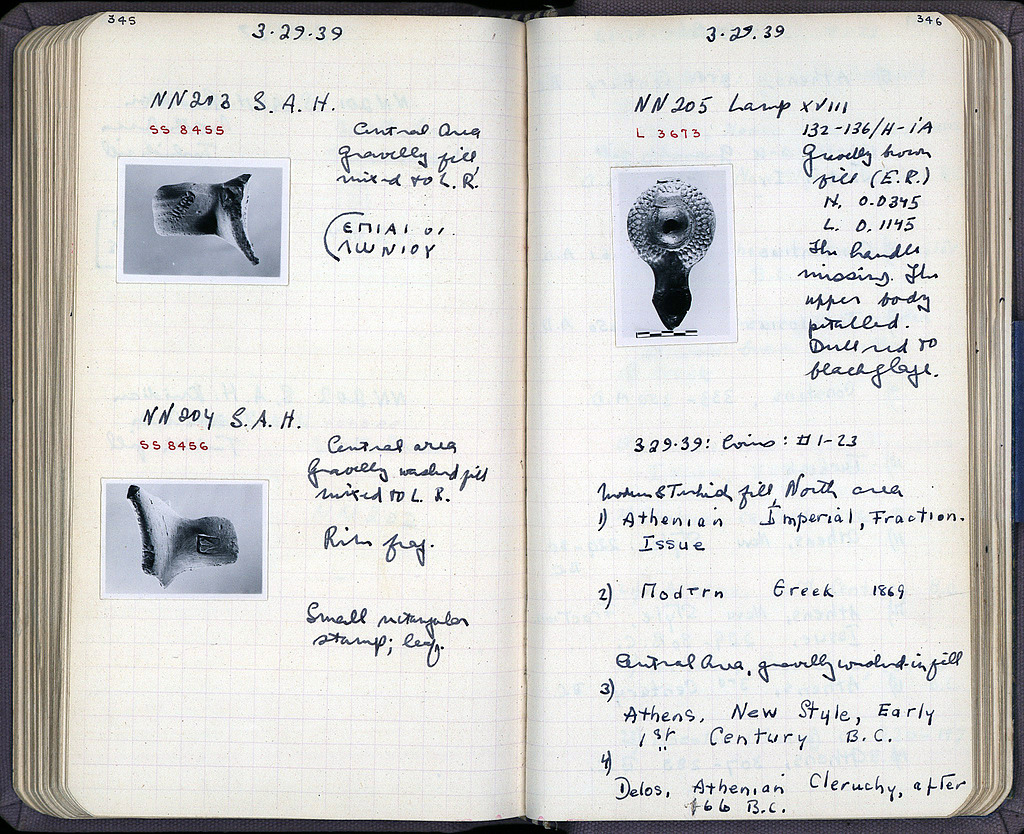 345
3·29·39
NN203 S.A.H.
SS 8455
Central Area
gravelly fill,
mixed to L.R.
ΕΠΙΑΙ ΟΙ.
ΛΩΝΙΟΥ
NN204 S.A.H.
SS 8456
Central area
Gravelly washed fill
mixed to L.R.
Rim frag.
Small rectangular
stamp; leaf.
346
3·29·39
NN205 Lamp XVIII
L 3673
132-136/H-ΙΑ
Gravelly brown
fill (E.R.)
H. 0.0345
L. 0.1145
The handle
missing. The
upper body
petalled.
Dull red to
black glaze.
3·29·39: Coins: #1-23
Modern & Turkish fill, North area
1) Athenian Imperial, Fraction.
Issue
2) Modern Greek 1869
Central Area, gravelly washed-in fill
3)
Athens, New Style, Early
1st Century B.C.
4)
Delos, Athenian Cleruchy, after
166 B.C.